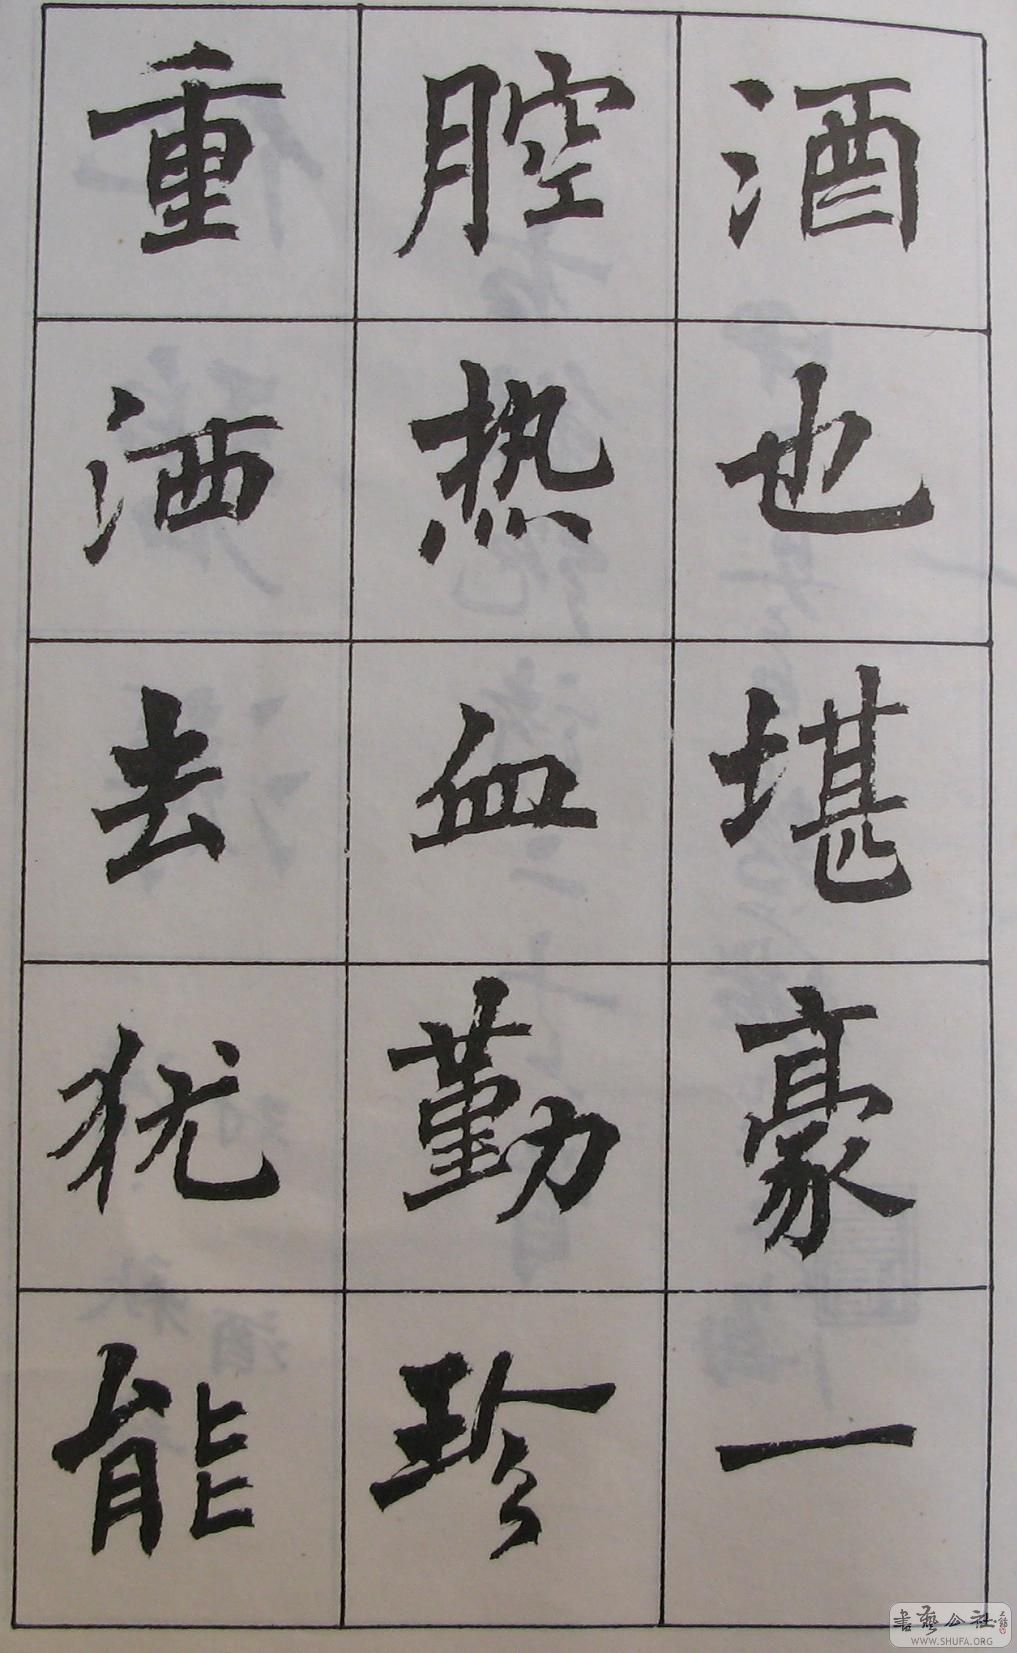 酒也堪豪一
腔热血勤珍
重洒去犹能
書藝公社
WWW.SHUFA.ORG